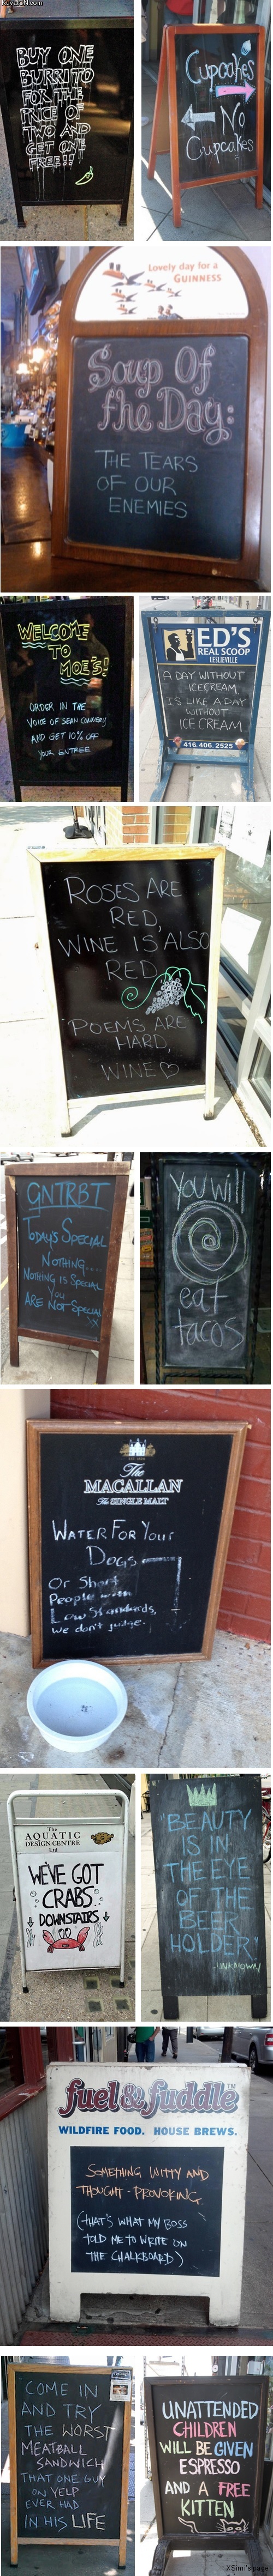 BUY ONE
BURRITO
FOR THE
PRICE OF
TWO AND
GET ONE
FREE!!
Cupcakes
No
Cupcakes
Lovely day for a
GUINNESS
Soup Of
the Day:
THE TEARS
OF OUR
ENEMIES
WELCOME
TO
MOE'S!
ORDER IN THE
VOICE OF SEAN CONNERY
AND GET 10% OFF
YOUR ENTREE
ED'S
REAL SCOOP
LESLIEVILLE
A DAY WITHOUT
ICECREAM
IS LIKE A DAY
WITHOUT
ICE CREAM
416.406.2525
ROSES ARE
RED,
WINE IS ALSO
RED,
POEMS ARE
HARD,
WINE♡
GNTRBT
TODAY'S SPECIAL
NOTHING...
NOTHING IS SPECIAL
YOU
ARE NOT SPECIAL
XX
YOU WILL
eat
tacos
The
MACALLAN
The SINGLE MALT
WATER FOR YOUR
DOGS
Or Short
People with
Low Standards,
we don't judge.
The
AQUATIC
DESIGN CENTRE
Ltd
WE'VE GOT
CRABS
DOWNSTAIRS
"BEAUTY
IS IN
THE EYE
OF THE
BEER
HOLDER"
-UNKNOWN
fuel & fuddle™
WILDFIRE FOOD. HOUSE BREWS.
SOMETHING WITTY AND
THOUGHT-PROVOKING
(THAT'S WHAT MY BOSS
TOLD ME TO WRITE ON
THE CHALKBOARD)
COME IN
AND TRY
THE WORST
MEATBALL
SANDWICH
THAT ONE GUY
ON YELP
EVER HAD
IN HIS LIFE
UNATTENDED
CHILDREN
WILL BE GIVEN
ESPRESSO
AND A FREE
KITTEN
XSimi's page